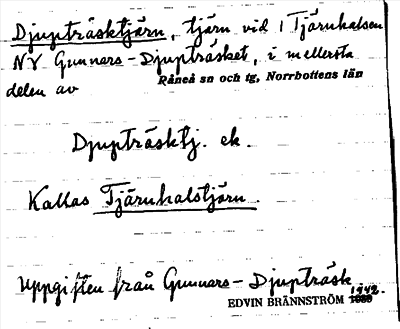 Djupträsktjärn, tjärn vid 1 Tjärnhalsen
NV Gunnars-Djupträsket, i mellersta
Råneå sn och tg, Norrbottens län
delen av
Djupträsktj. ek.
Kallas Tjärnhalstjärn.
Uppgiften från Gunnars-Djupträsk
EDVIN BRÄNNSTRÖM 1942.